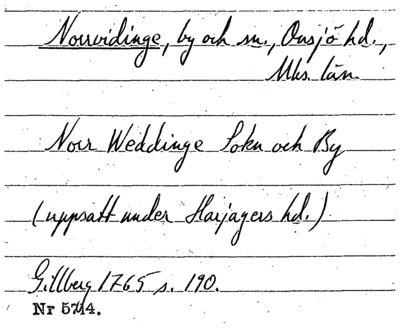 Norrvidinge, by och sn., Onsjö hd.,
Mhs. län.
Norr Weddinge Sokn och By
(uppsatt under Harjagers hd.)
Gillberg 1765 s. 190.
Nr 5714.